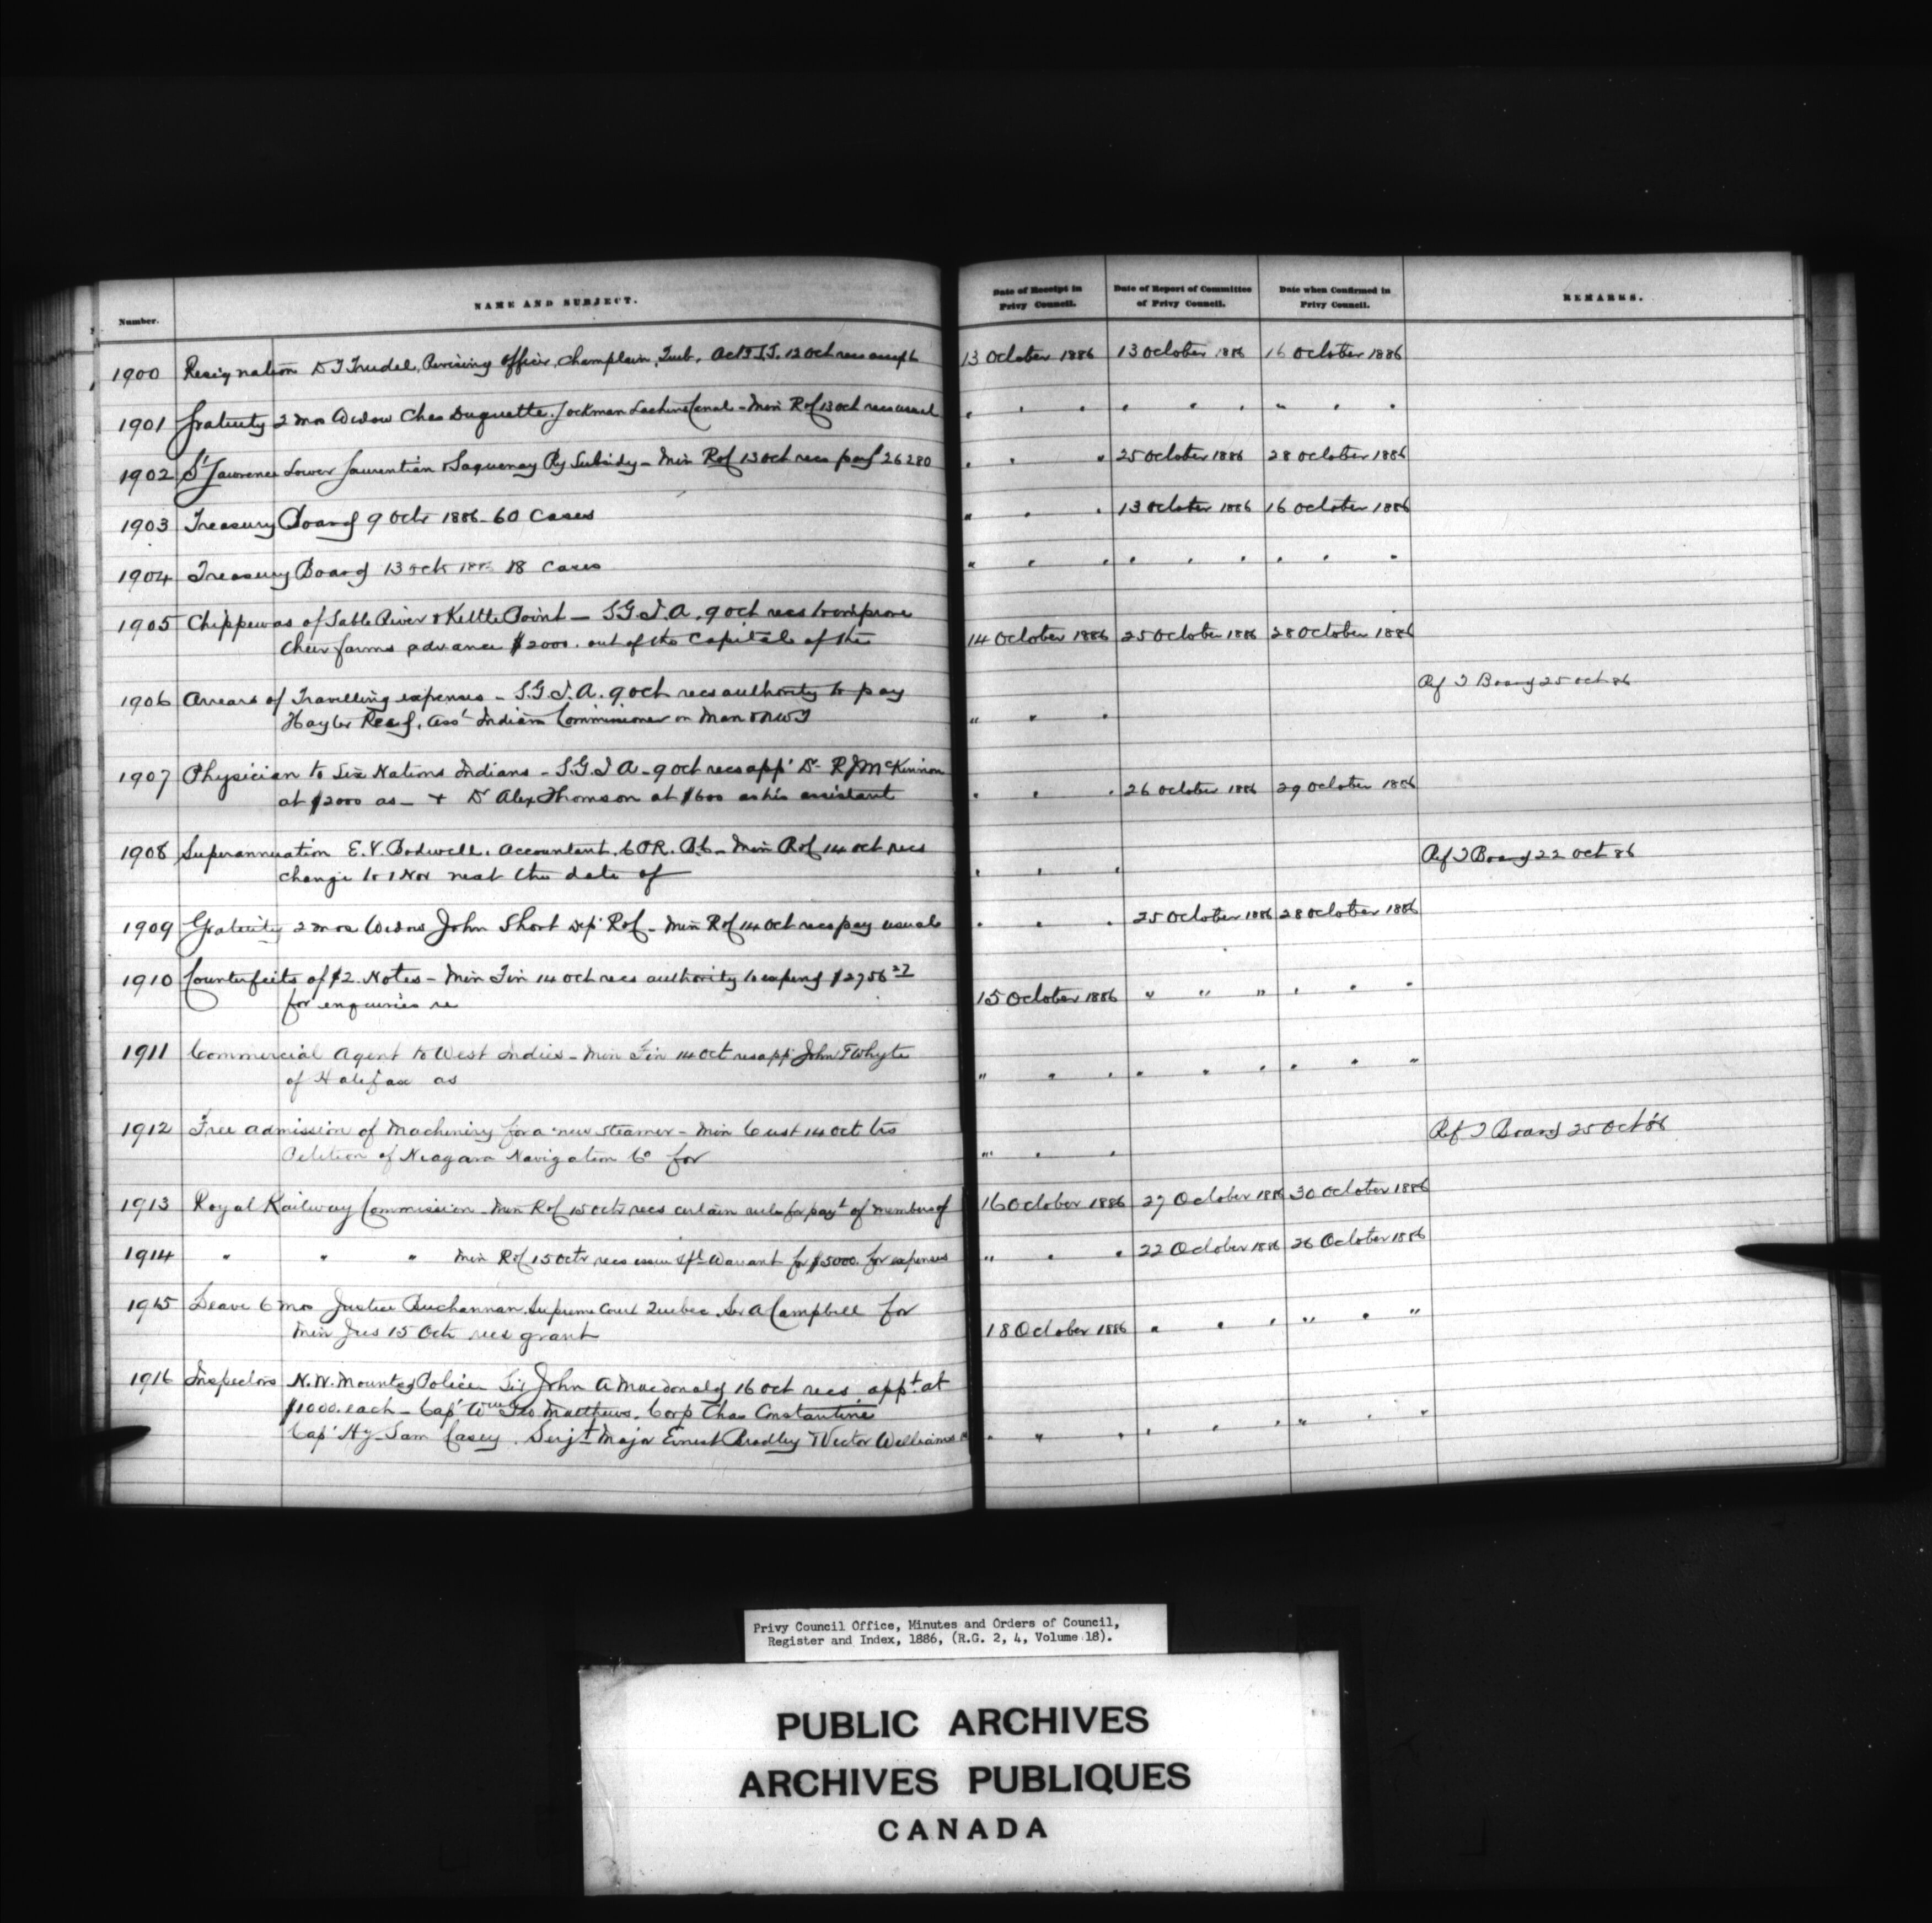 Number. NAME AND SUBJECT. Date of Receipt in Privy Council. Date of Report of Committee of Privy Council. Date when Confirmed in Privy Council. REMARKS.
1900 Resignation D T Trudel, Revising Officer, Champlain, Queb. 12 Oct recs accept 13 October 1886 13 October 1886 16 October 1886
1901 Gratuity 2 mos Widow Chas Duquette. Lockman Lachine Canal - Min Rof 13 Oct recs usual " " " " " " " " "
1902 St Lawrence Lower Laurentian & Saguenay Ry Subsidy - Min Rof 13 Oct recs payt 26280 " " " 25 October 1886 28 October 1886
1903 Treasury Board 9 Octr 1886 - 60 Cases " " " 13 October 1886 16 October 1886
1904 Treasury Board 13 Oct 1886 18 Cases " " " " " " " " "
1905 Chippewas of Sable River & Kettle Point — S.G.I.A. 9 Oct recs to improve
their farms advance $2000. out of the Capital of the 14 October 1886 25 October 1886 28 October 1886
1906 Arrears of Travelling expenses - S.G.I.A. 9 Oct recs authority to pay Ref T Board 25 Oct 86
Hayter Reed, Asst Indian Commissioner in Man & NWT " " "
1907 Physician to Six Nations Indians - S.G.I A - 9 Oct recs appt Dr R J McKinnon
at $2000 as - + Dr Alex Thomson at $600 as his assistant " " " 26 October 1886 29 October 1886
1908 Superannuation E.V. Bodwell. Accountant. C P R. B.C. - Min Rof 14 Oct recs Ref T Board 22 Oct 86
change to 1 Nov next the date of " " "
1909 Gratuity 2 mos Widow John Short Dep Rof - Min Rof 14 Oct recs pay usual " " " 25 October 1886 28 October 1886
1910 Counterfeits of $2. Notes - Min Fin 14 Oct recs authority to expend $2756 27
for enquiries re 15 October 1886 " " " " " "
1911 Commercial Agent to West Indies - Min Fin 14 Oct recs appt John F Whyte
of Halifax as " " " " " " " " "
1912 Free admission of Machinery for a new Steamer - Min Cust 14 Oct trs Ref T Board 25 Oct 86
Petition of Niagara Navigation Co for " " "
1913 Royal Railway Commission - Min Rof 15 Octr recs certain rules for payt of members of 16 October 1886 27 October 1886 30 October 1886
1914 " " " Min Rof 15 Octr recs issue Spl Warrant for $5000. for expenses " " " 22 October 1886 26 October 1886
1915 Leave 6 mos Justice Buchannan Supreme Court Quebec. Sir A Campbell for
Min Jus 15 Oct recs grant 18 October 1886 " " " " " "
1916 Inspectors N.W. Mounted Police Sir John A Macdonald 16 Oct recs appt at
$1000. each - Capt Wm Geo Matthews. Corp Chas Constantine
Capt Hy Sam Casey. Serjt Major Ernest Bradley & Victor Williams " " " " " " " " "
Privy Council Office, Minutes and Orders of Council,
Register and Index, 1886, (R.G. 2, 4, Volume 18).
PUBLIC ARCHIVES
ARCHIVES PUBLIQUES
CANADA